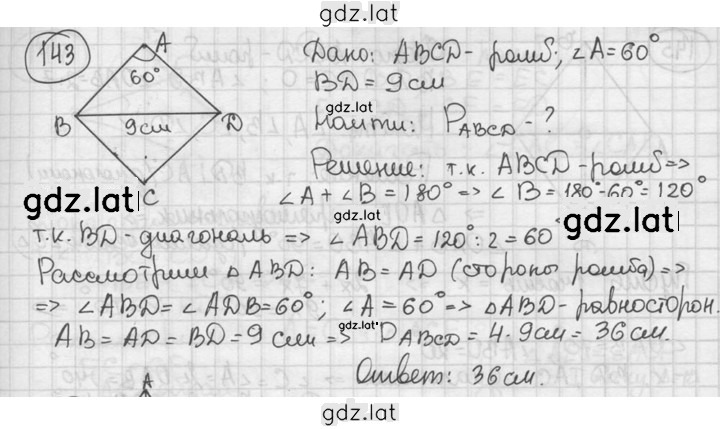 gdz.lat
143
A
60°
B
9см
D
C
Дано: ABCD - ромб; ∠A = 60°
BD = 9см
gdz.lat
Найти: P_ABCD - ?
Решение: т.к. ABCD - ромб =>
∠A + ∠B = 180° => ∠B = 180° - 60° = 120°
gdz.lat
gdz.lat
т.к. BD - диагональ => ∠ABD = 120° : 2 = 60°
Рассмотрим △ABD: AB = AD (стороны ромба) =>
=> ∠ABD = ∠ADB = 60°; ∠A = 60° => △ABD - равносторон.
AB = AD = BD = 9 см => P_ABCD = 4 · 9см = 36 см.
gdz.lat
Ответ: 36 см.
A
gdz.lat